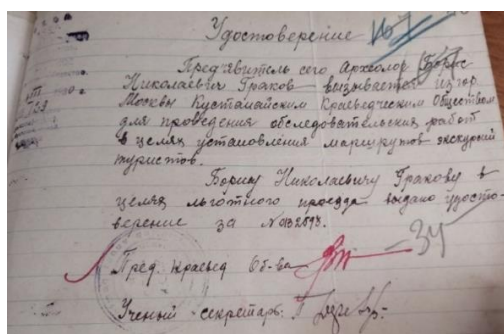 Удостоверение
Пред'явитель сего Археолог Борис
Николаевич Граков вызывается из гор
Москвы Кустанайским Краеведческим Обществом
для проведения обследовательских работ
в целях установления маршрутов экскурсий
туристов.
Борису Николаевичу Гракову в
целях льготного проезда выдано удосто-
верение за №
Пред. Краевед Об-ва
Ученый секретарь: